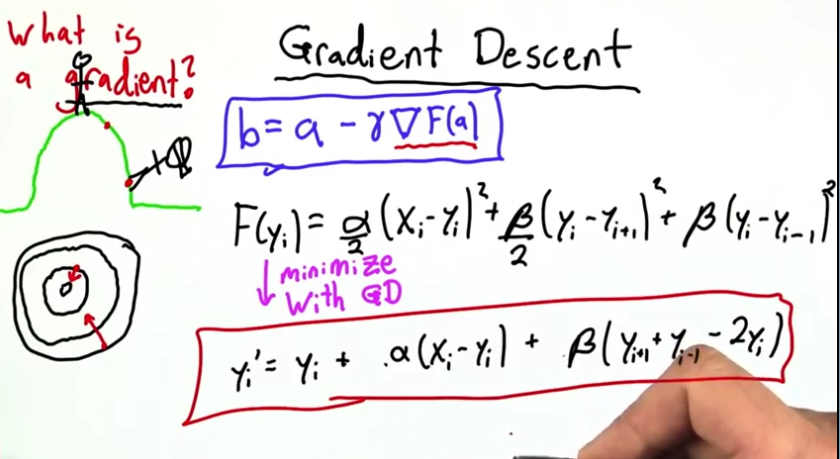 What is
a gradient?
Gradient Descent
b = a - γ∇F(a)
F(yᵢ) = α/2 (xᵢ - yᵢ)² + β/2 (yᵢ - yᵢ₊₁)² + β (yᵢ - yᵢ₋₁)²
↓ minimize
with GD
yᵢ' = yᵢ + α(xᵢ - yᵢ) + β(yᵢ₊₁ + yᵢ₋₁ - 2yᵢ)